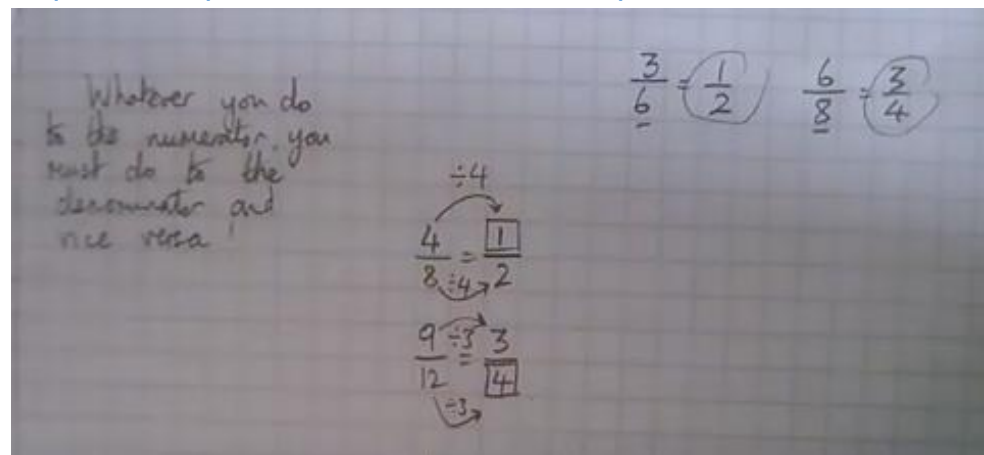 Whatever you do
to the numerator, you
must do to the
denominator and
vice versa!
3/6 = 1/2
6/8 = 3/4
÷4
4/8 = 1/2
÷4
÷3
9/12 = 3/4
÷3